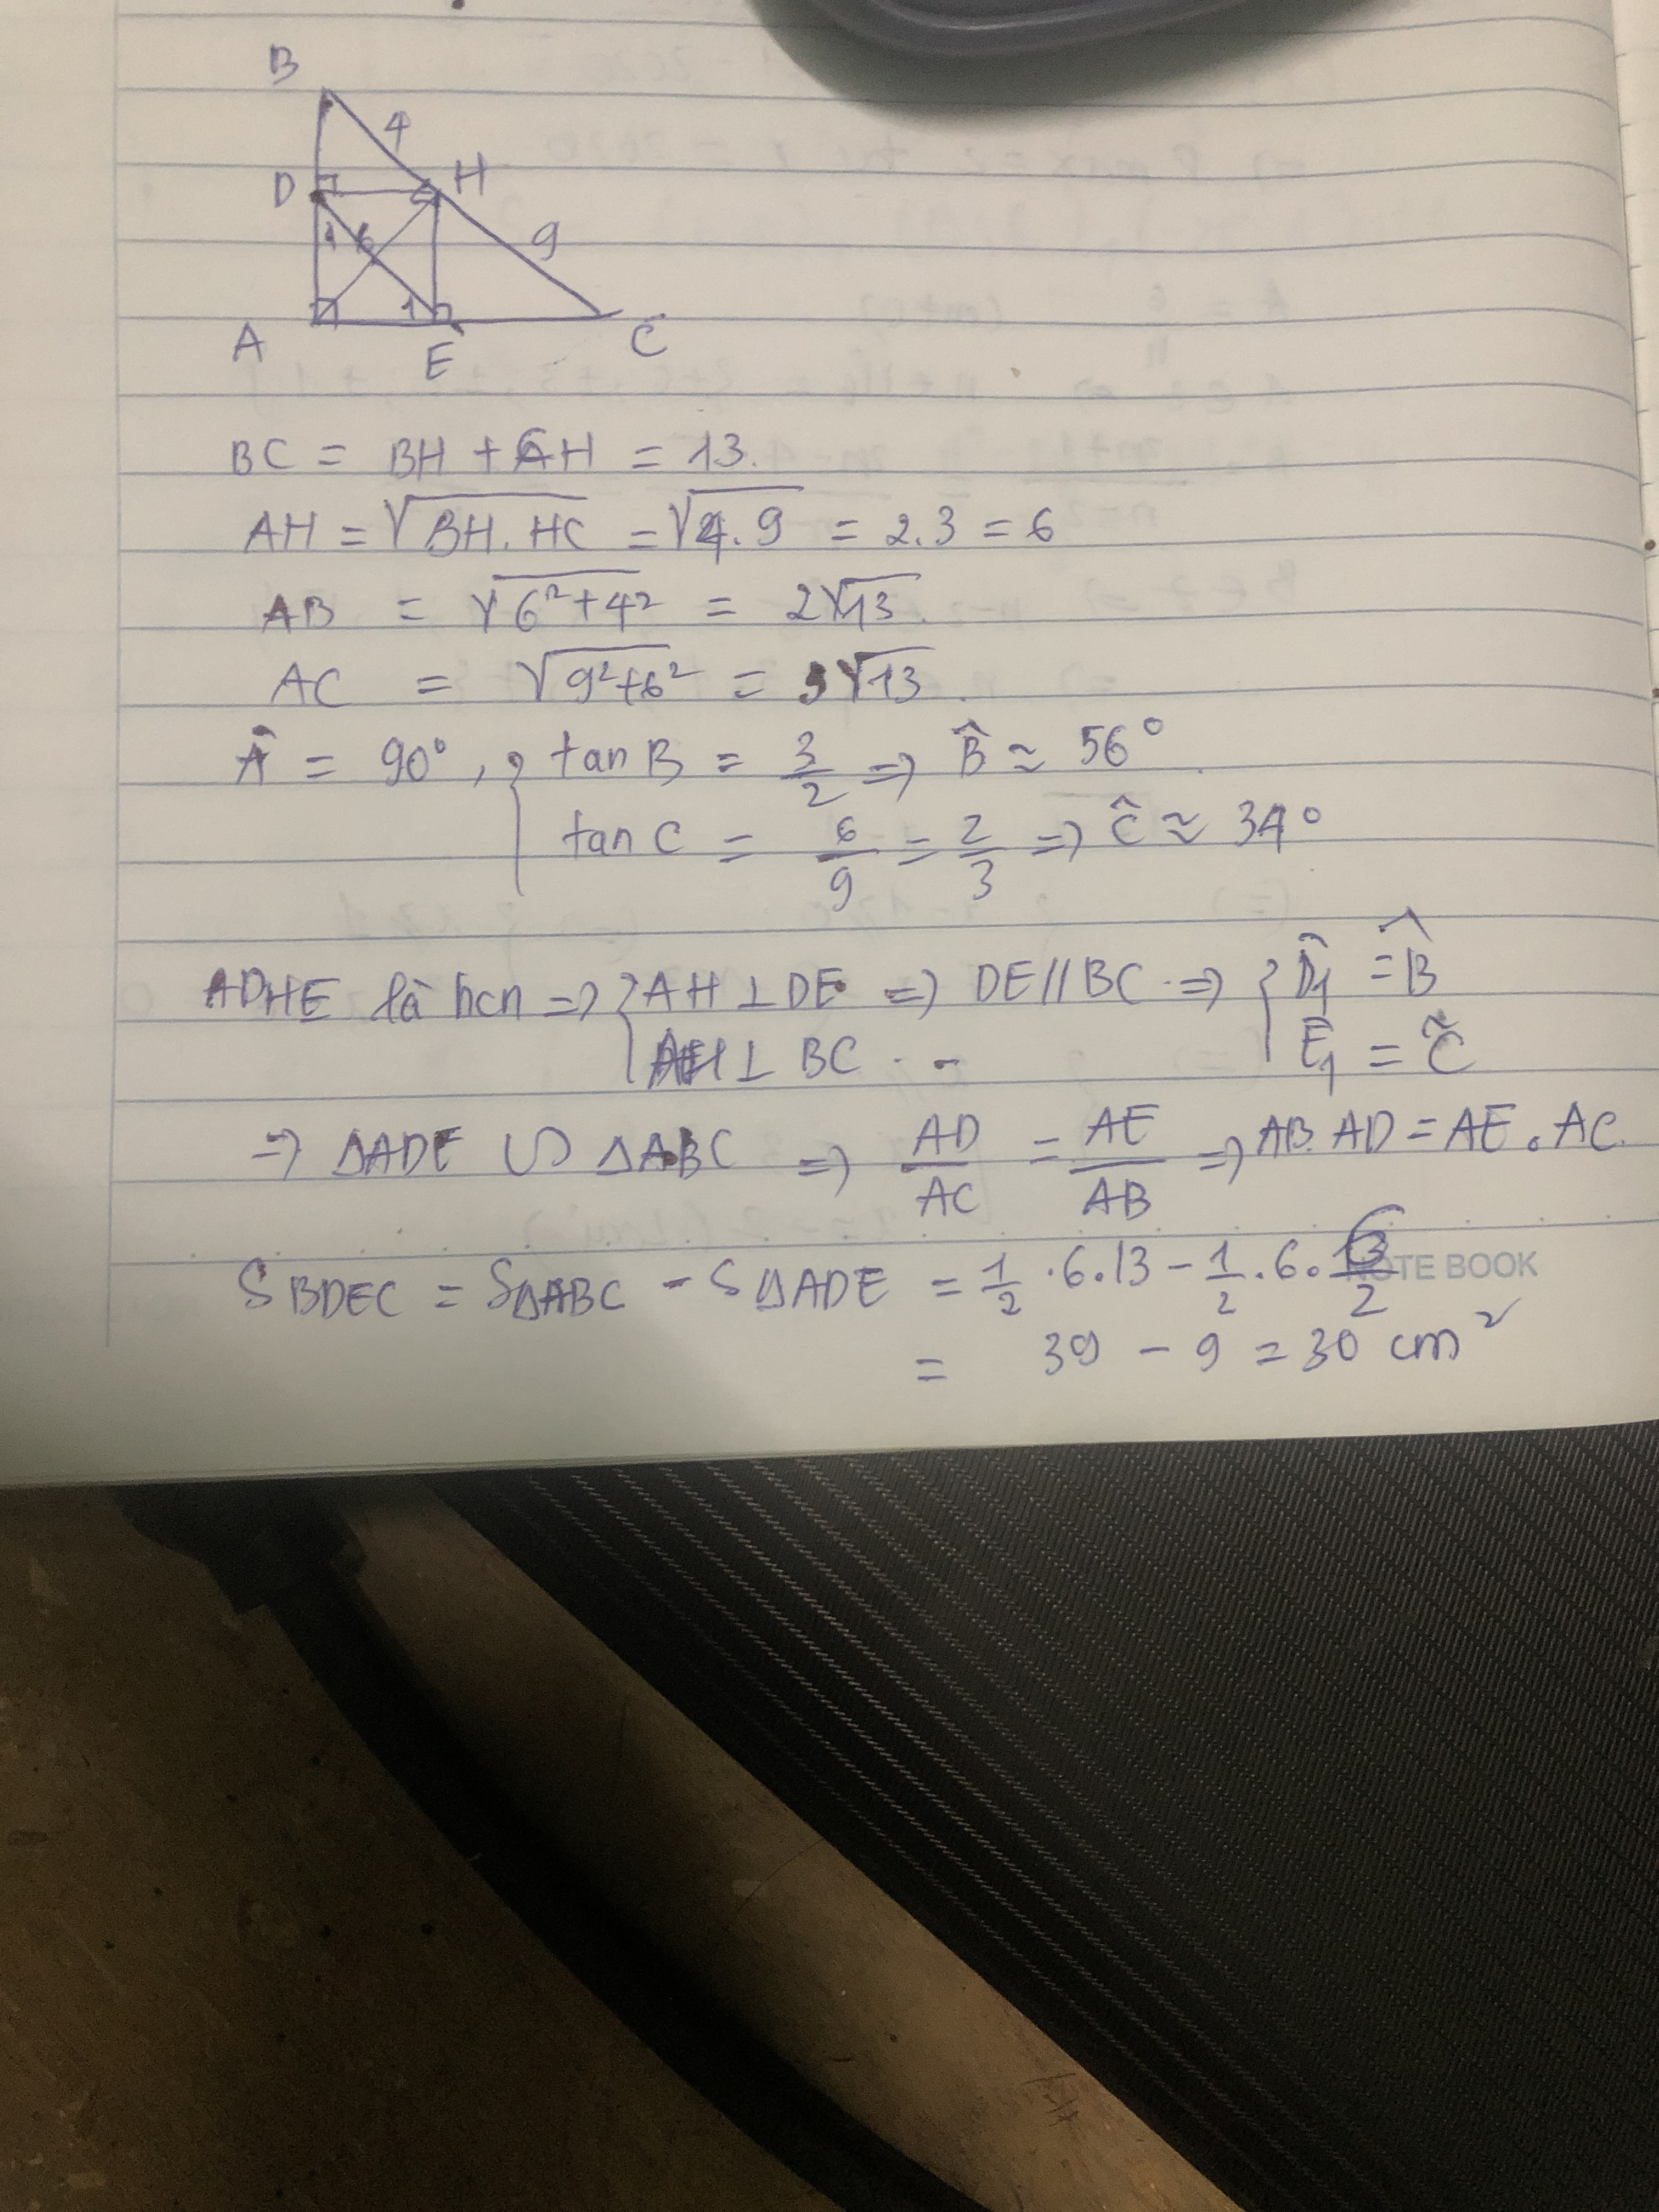 B
4
D
H
1
6
9
1
A
E
C
BC = BH + CH = 13.
AH = √BH.HC = √4.9 = 2.3 = 6
AB = √6²+4² = 2√13.
AC = √9²+6² = 3√13.
Â = 90°, { tanB = 3/2 => B̂ ≈ 56°.
tanC = 6/9 = 2/3 => Ĉ ≈ 34°
ADHE là hcn => { AH ⊥ DE => DE // BC => { D̂1 = B̂
AH ⊥ BC Ê1 = Ĉ
=> ΔADE ∽ ΔABC => AD/AC = AE/AB => AB.AD = AE.AC.
S BDEC = SΔABC - SΔADE = 1/2 .6.13 - 1/2 .6. /2
NOTE BOOK
= 39 - 9 = 30 cm²